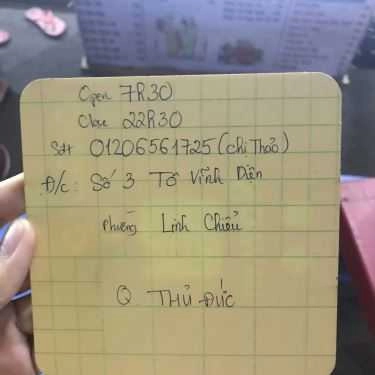 Open 7h30
Close 22h30
Sđt 01206561725 (chị Thảo)
Đ/c: Số 3 Tô Vĩnh Diện
Phường Linh Chiểu
Q THỦ ĐỨC